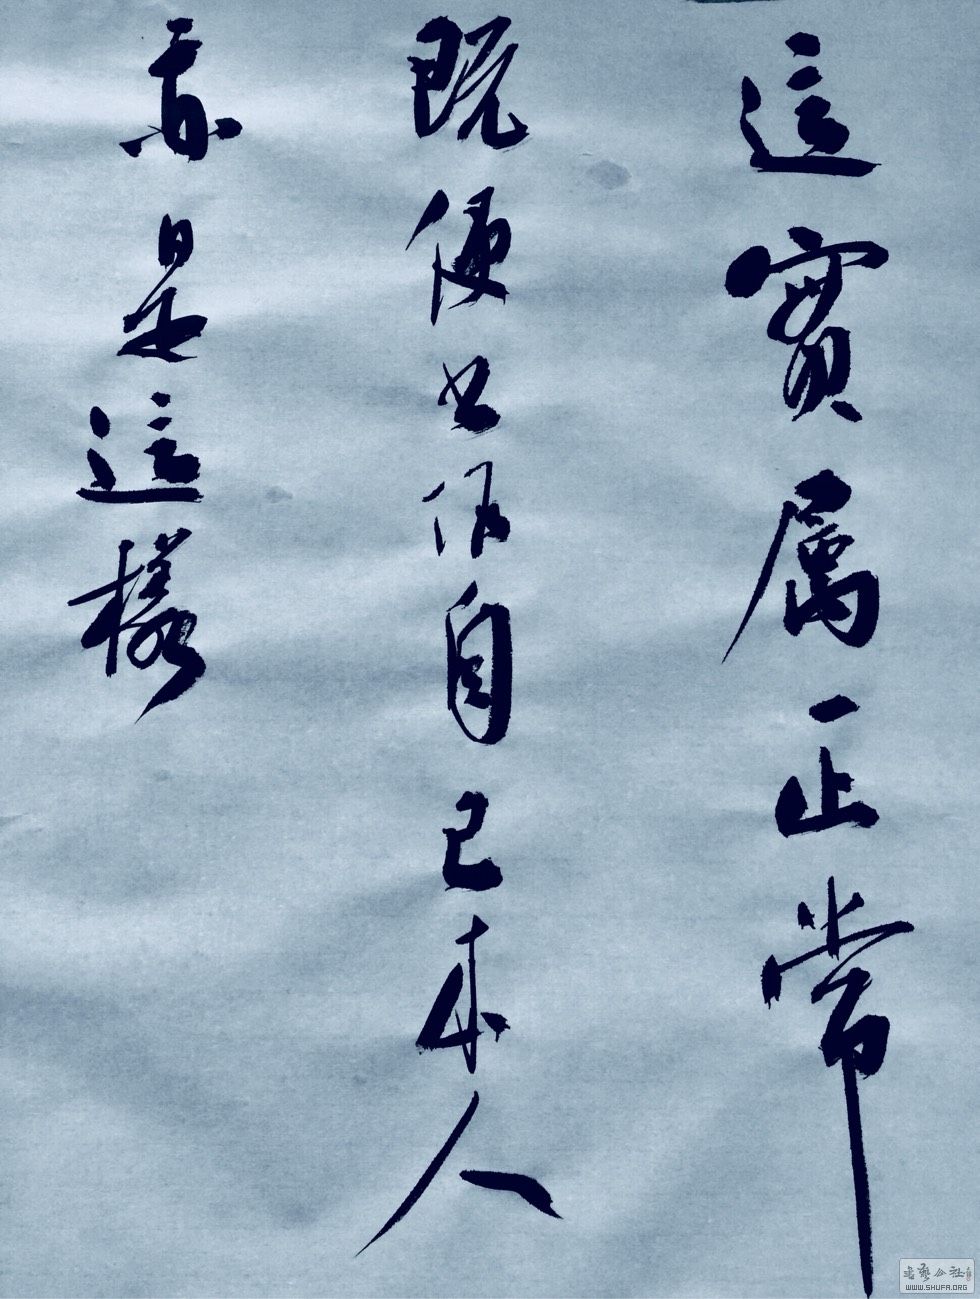 這實属正常
既便公佈自己本人
亦是這樣
書藝公社
WWW.SHUFA.ORG